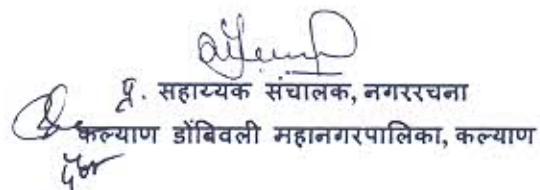 प्र. सहाय्यक संचालक, नगररचना
कल्याण डोंबिवली महानगरपालिका, कल्याण